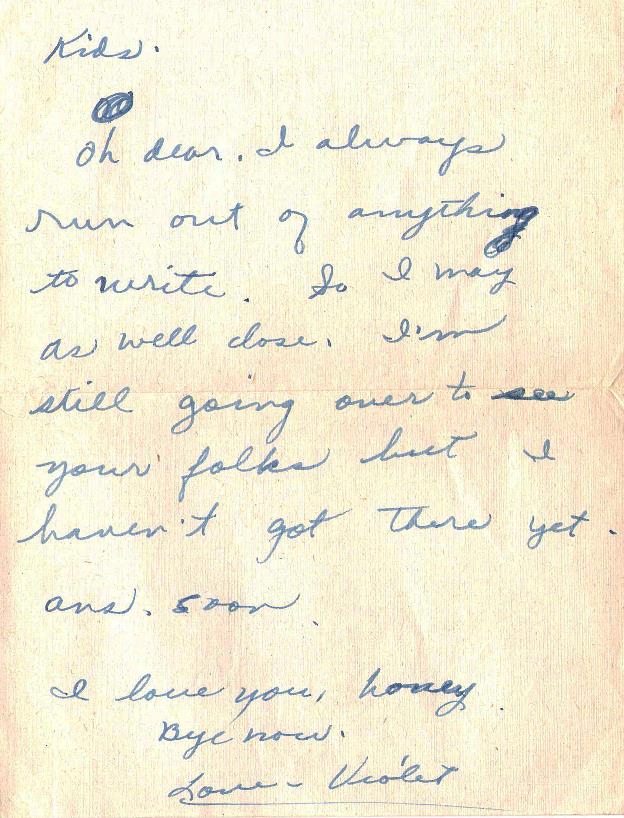 Kids.
Oh dear. I always
run out of anything
to write. So I may
as well close. I'm
still going over to see
your folks but I
haven't got there yet.
ans. soon.
I love you, honey.
Bye now.
Love - Violet